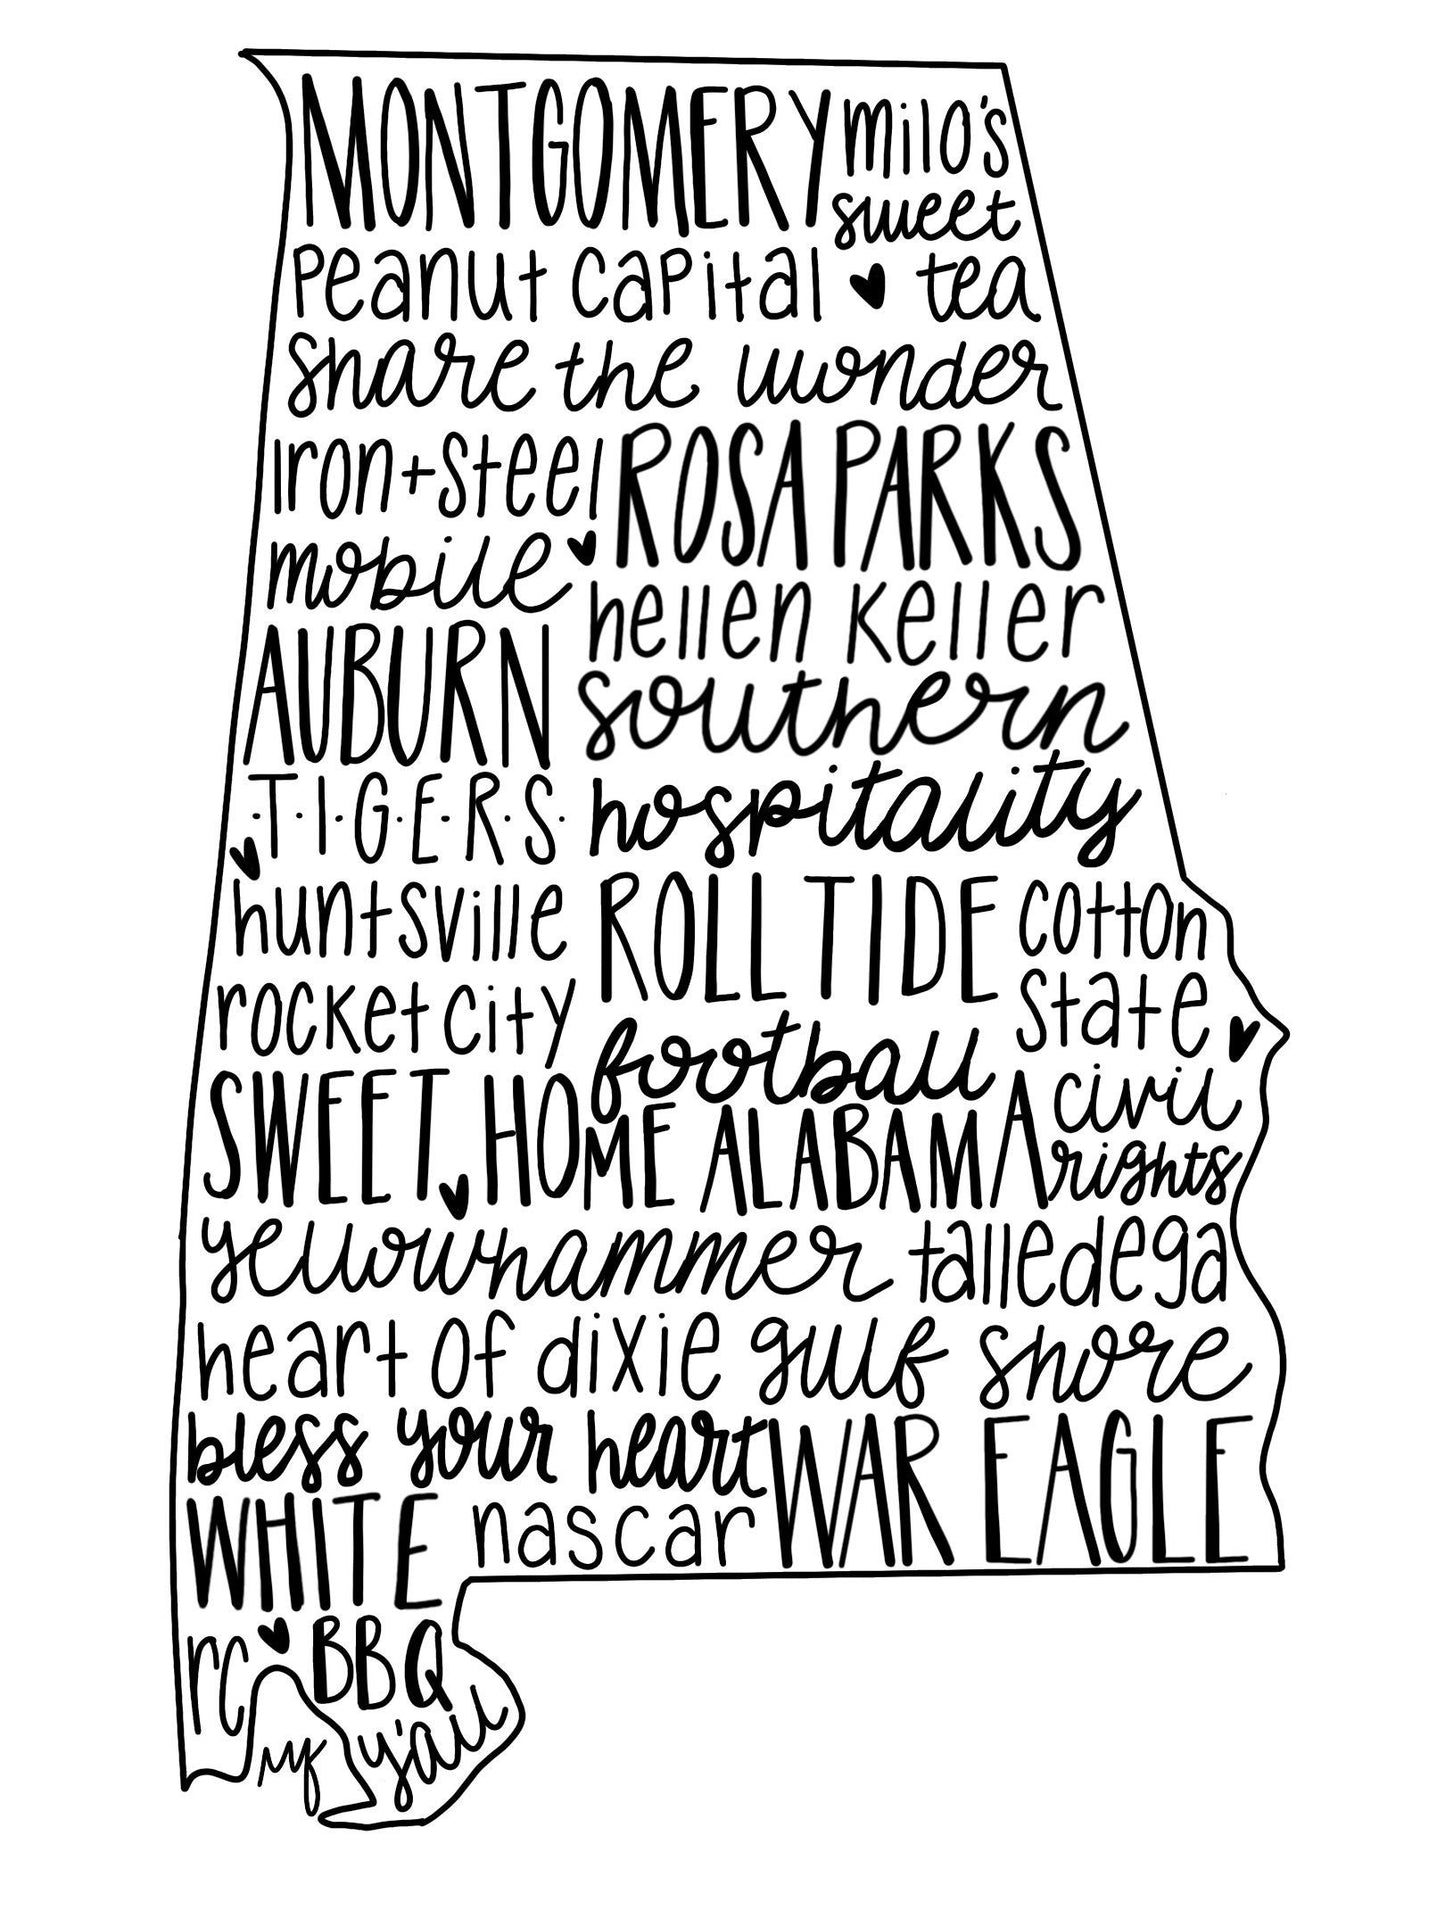 MONTGOMERY milo's
sweet
Peanut Capital tea
share the wonder
Iron+steel ROSA PARKS
mobile
hellen Keller
AUBURN southern
·T·I·G·E·R·S· hospitality
huntsville ROLL TIDE cotton
rocket city state
football
SWEET HOME ALABAMA civil
rights
yellowhammer talledega
heart of dixie gulf shore
bless your heart WAR EAGLE
WHITE nascar
rc BBQ
y'all